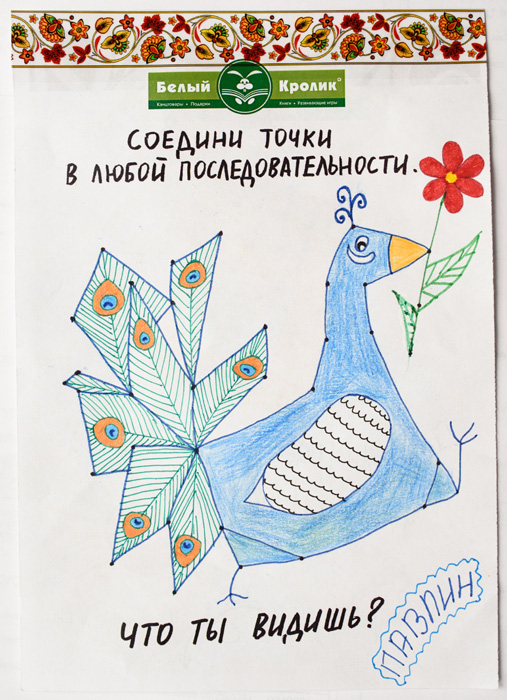 Белый Кролик®
Канцтовары • Подарки Книги • Развивающие игры
СОЕДИНИ ТОЧКИ
В ЛЮБОЙ ПОСЛЕДОВАТЕЛЬНОСТИ.
ЧТО ТЫ ВИДИШЬ?
ПАВЛИН